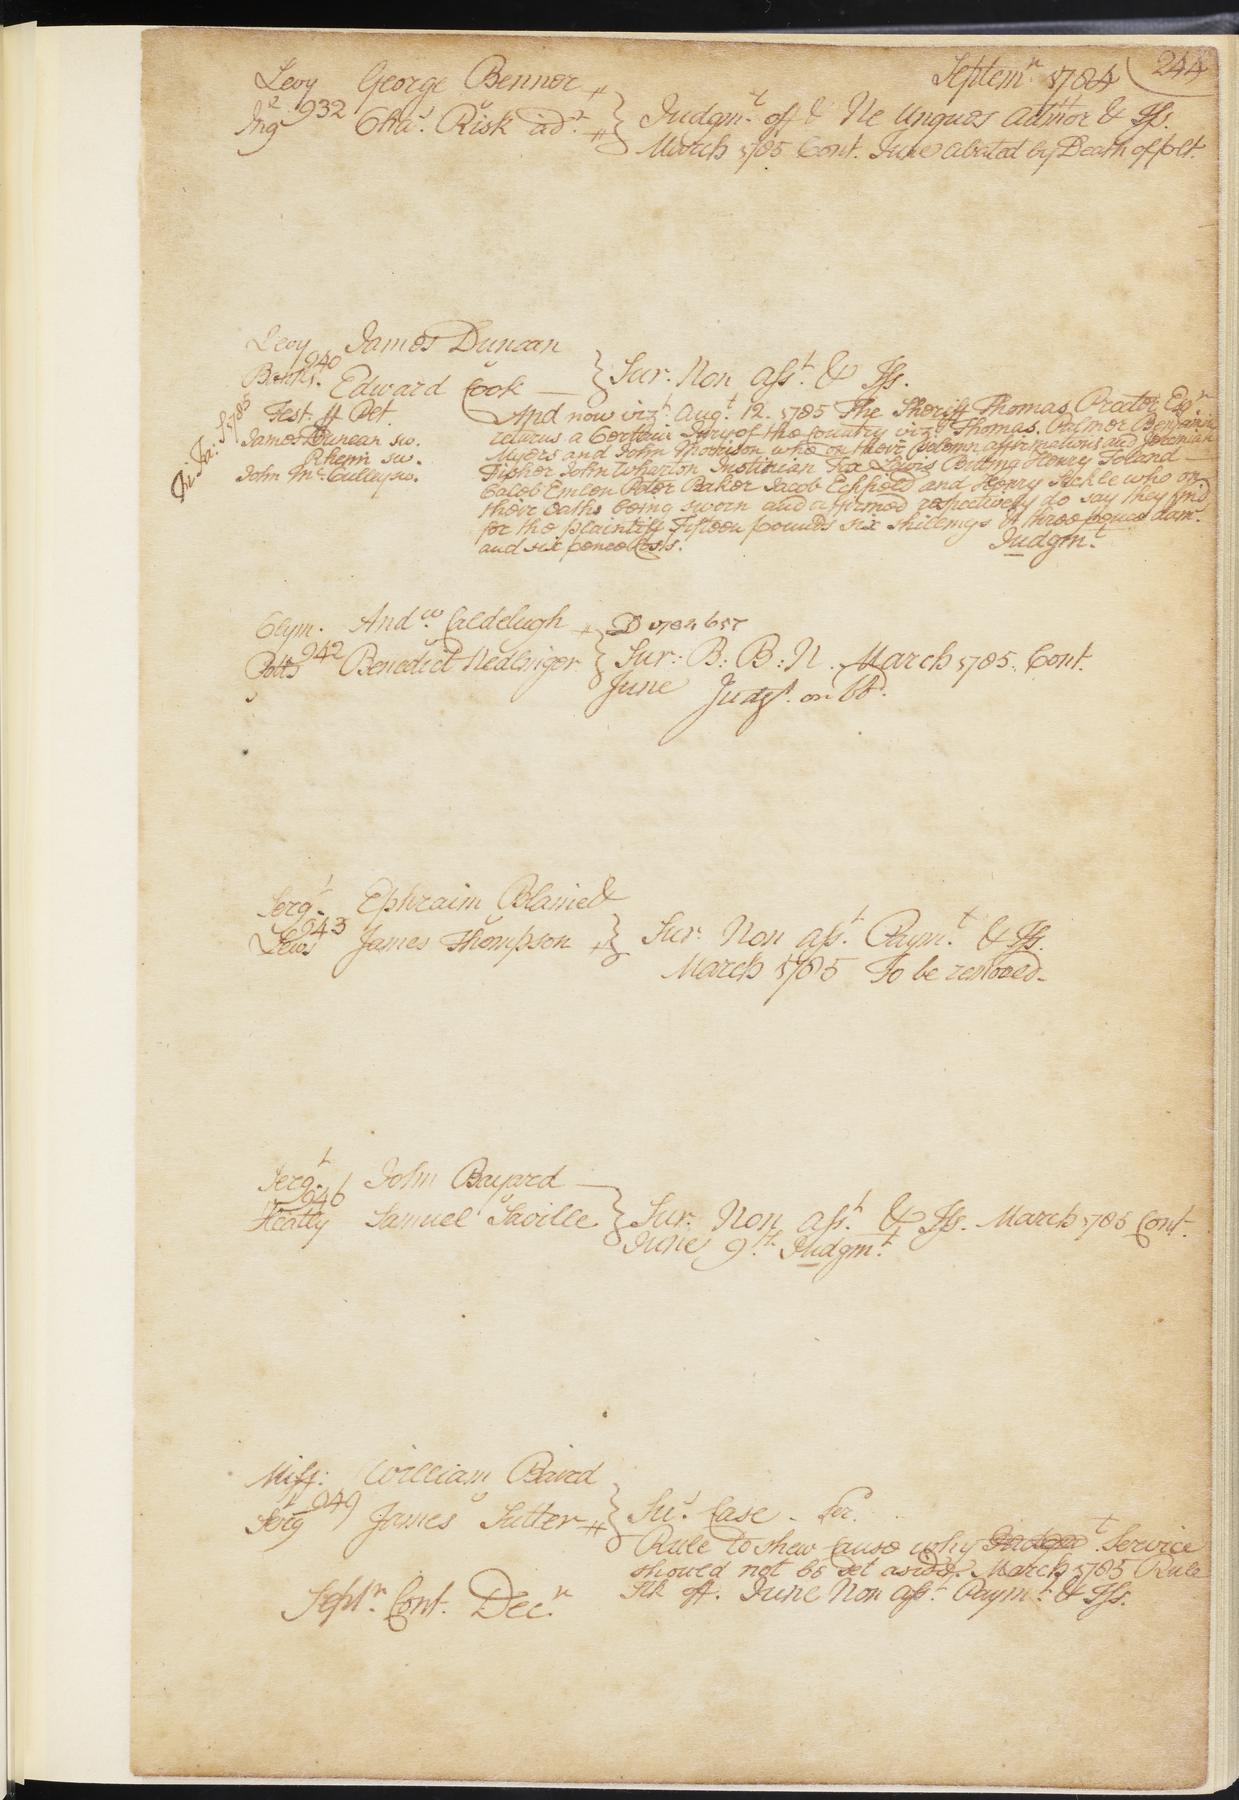 Septemr 1784 244
Levy George Bennor
932 v
Ingr Chas. Risk adr. Judgmt. off & Ne Unques Admor & Iss.
March 1785 Cont. June abated by Death of plt.
Levy James Duncan
940 v
Bank. Edward Cook Sur. Non asst. & Iss.
Test. ff Plt.
James Duncan sw.
Rhem sw.
John McCulley sw.
And now vizt. Augt. 12. 1785 The Sheriff Thomas Proctor Esqr
returns a Certain Jury of the Country vizt. Thomas Palmer Benjamin
Myers and John Morrison who on their Solemn affirmations and Jeremiah
Fisher John Wharton Justinian Fox Lewis Boiting Henry Toland
Caleb Emlen Peter Baker Jacob Echfeld and Henry Sickle who on
their oaths being sworn and affirmed respectively do say they find
for the plaintiff Fifteen pounds six shillings & three pence dam.
and six pence Costs. Judgmt.
Clym. Andw. Caldclugh D 1784 657
942 v
Potts Benedict Nedlinger Sur: B: B: N. March 1785. Cont.
June Judgt. on bd.
Sergt. Ephraim Blaine
943 v
Lewis James Thompson Sur. Non asst. Paymt. & Iss.
March 1785 To be removed.
Sergt. John Bayard
946 v
Heatly Samuel Saville Sur. Non asst. & Iss. March 1785 Cont.
June 9th. Judgmt.
Miff: William Baird
949 v
Sergt James Sutter Sus. Case. Nar.
Rule to shew cause why Service
should not be set aside. March 1785 Rule
Stk off. June Non asst. Paymt. & Iss.
Septr. Cont. Decr.